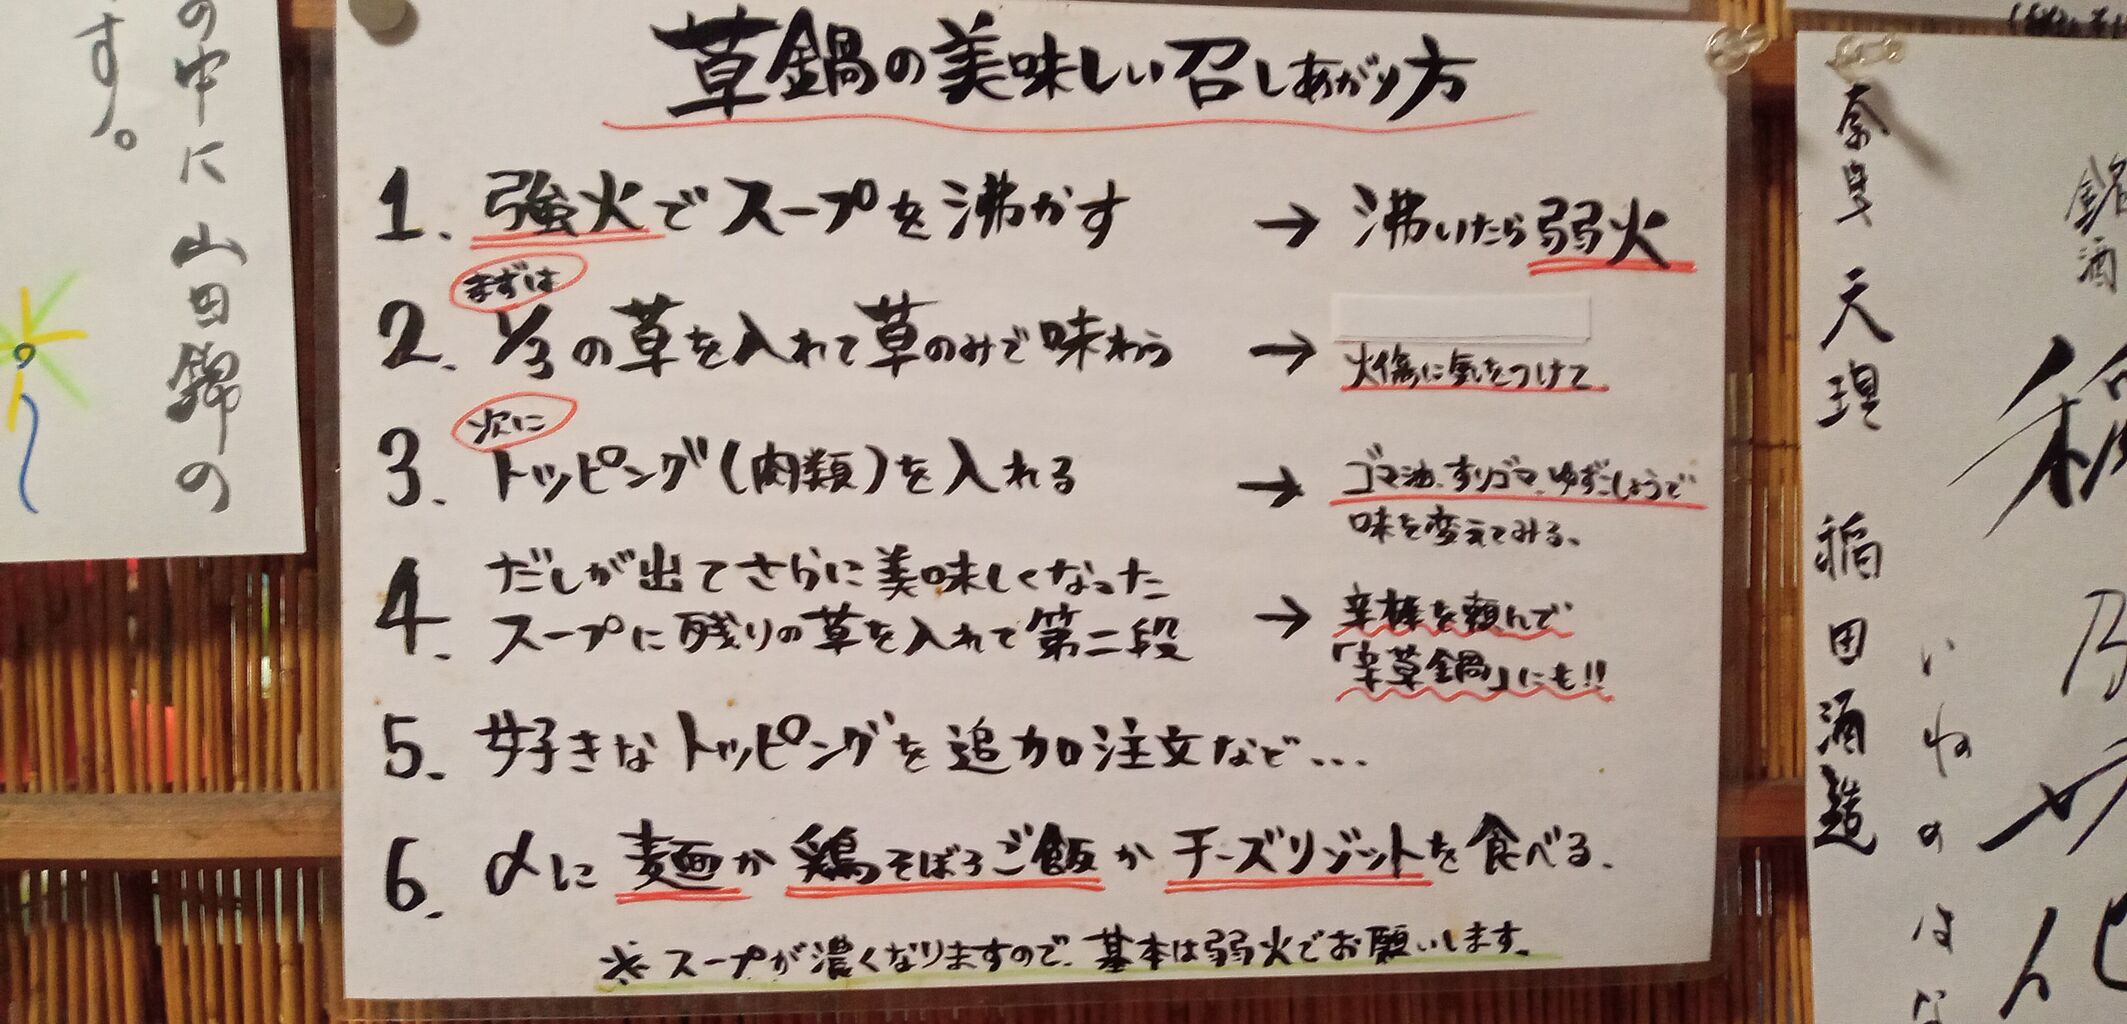 の中に山田錦の
す。
草鍋の美味しい召しあがり方
1. 強火でスープを沸かす → 沸いたら弱火
まずは
2. 1/3の草を入れて草のみで味わう →
火傷に気をつけて
次に
3. トッピング(肉類)を入れる → ゴマ油、すりゴマ、ゆずこしょうで
味を変えてみる、
4. だしが出てさらに美味しくなった
スープに残りの草を入れて第二段 → 辛棒を頼んで
「辛草鍋」にも!!
5. 好きなトッピングを追加注文など…
6. 〆に麺か鶏そぼろご飯かチーズリゾットを食べる、
※スープが濃くなりますので、基本は弱火でお願いします。
銘酒
稲乃花
いねのはな
奈良 天理 稲田酒造